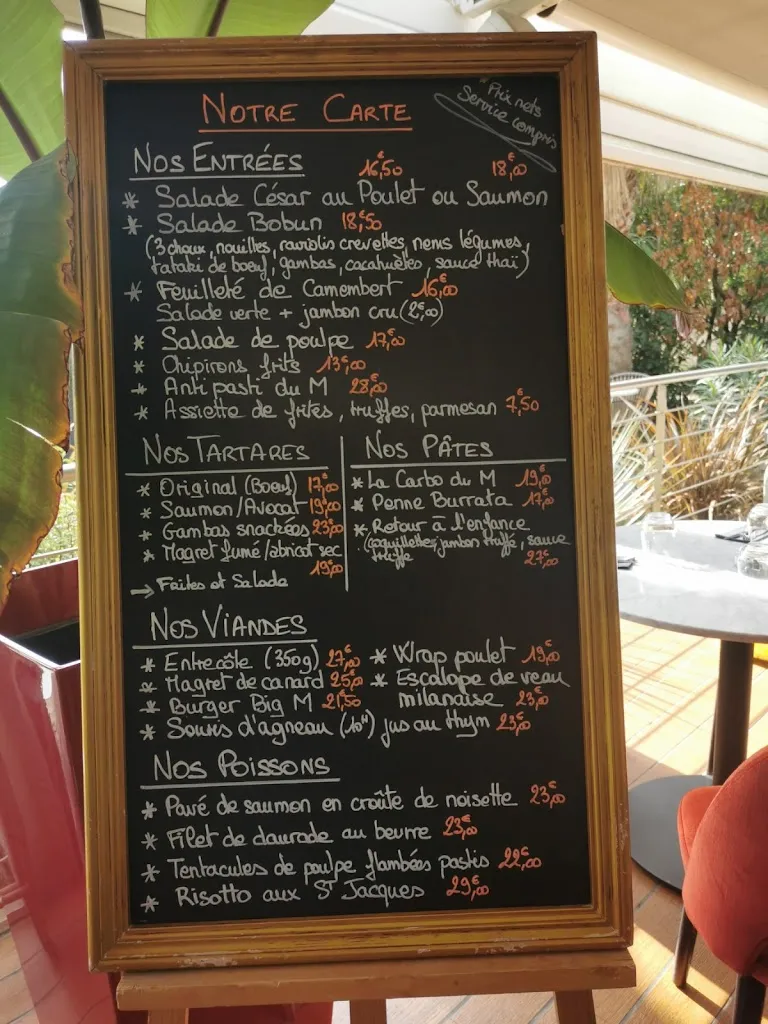 NOTRE CARTE
* Prix nets
Service compris
NOS ENTRÉES 16€,50 18€,00
* Salade César au Poulet ou Saumon
* Salade Bobun 18€,50
(3 choux, nouilles, raviolis crevettes, nems légumes,
tataki de boeuf, gambas, cacahuètes, sauce thaï)
* Feuilleté de Camembert 16€,00
Salade verte + jambon cru (2€,00)
* Salade de poulpe 17€,00
* Chipirons frits 13€,00
* Anti pasti du M 28€,00
* Assiette de frites, truffes, parmesan 7€,50
NOS TARTARES
* Original (Boeuf) 17€,00
* Saumon/Avocat 19€,00
* Gambas snackées 23€,00
* Magret fumé/abricot sec
19€,00
→ Frites et Salade
NOS PÂTES
* La Carbo du M 19€,00
* Penne Burrata 17€,00
* Retour à l'enfance
(coquillettes, jambon truffé, sauce
truffe 27€,00
NOS VIANDES
* Entrecôte (350g) 27€,00
* Magret de canard 25€,00
* Burger Big M 21€,50
* Souris d'agneau (10H) jus au thym 23€,00
* Wrap poulet 19€,00
* Escalope de veau
milanaise 23€,00
NOS POISSONS
* Pavé de saumon en croûte de noisette 23€,00
* Filet de daurade au beurre 23€,00
* Tentacules de poulpe flambées pastis 22€,00
* Risotto aux ST Jacques 29€,00